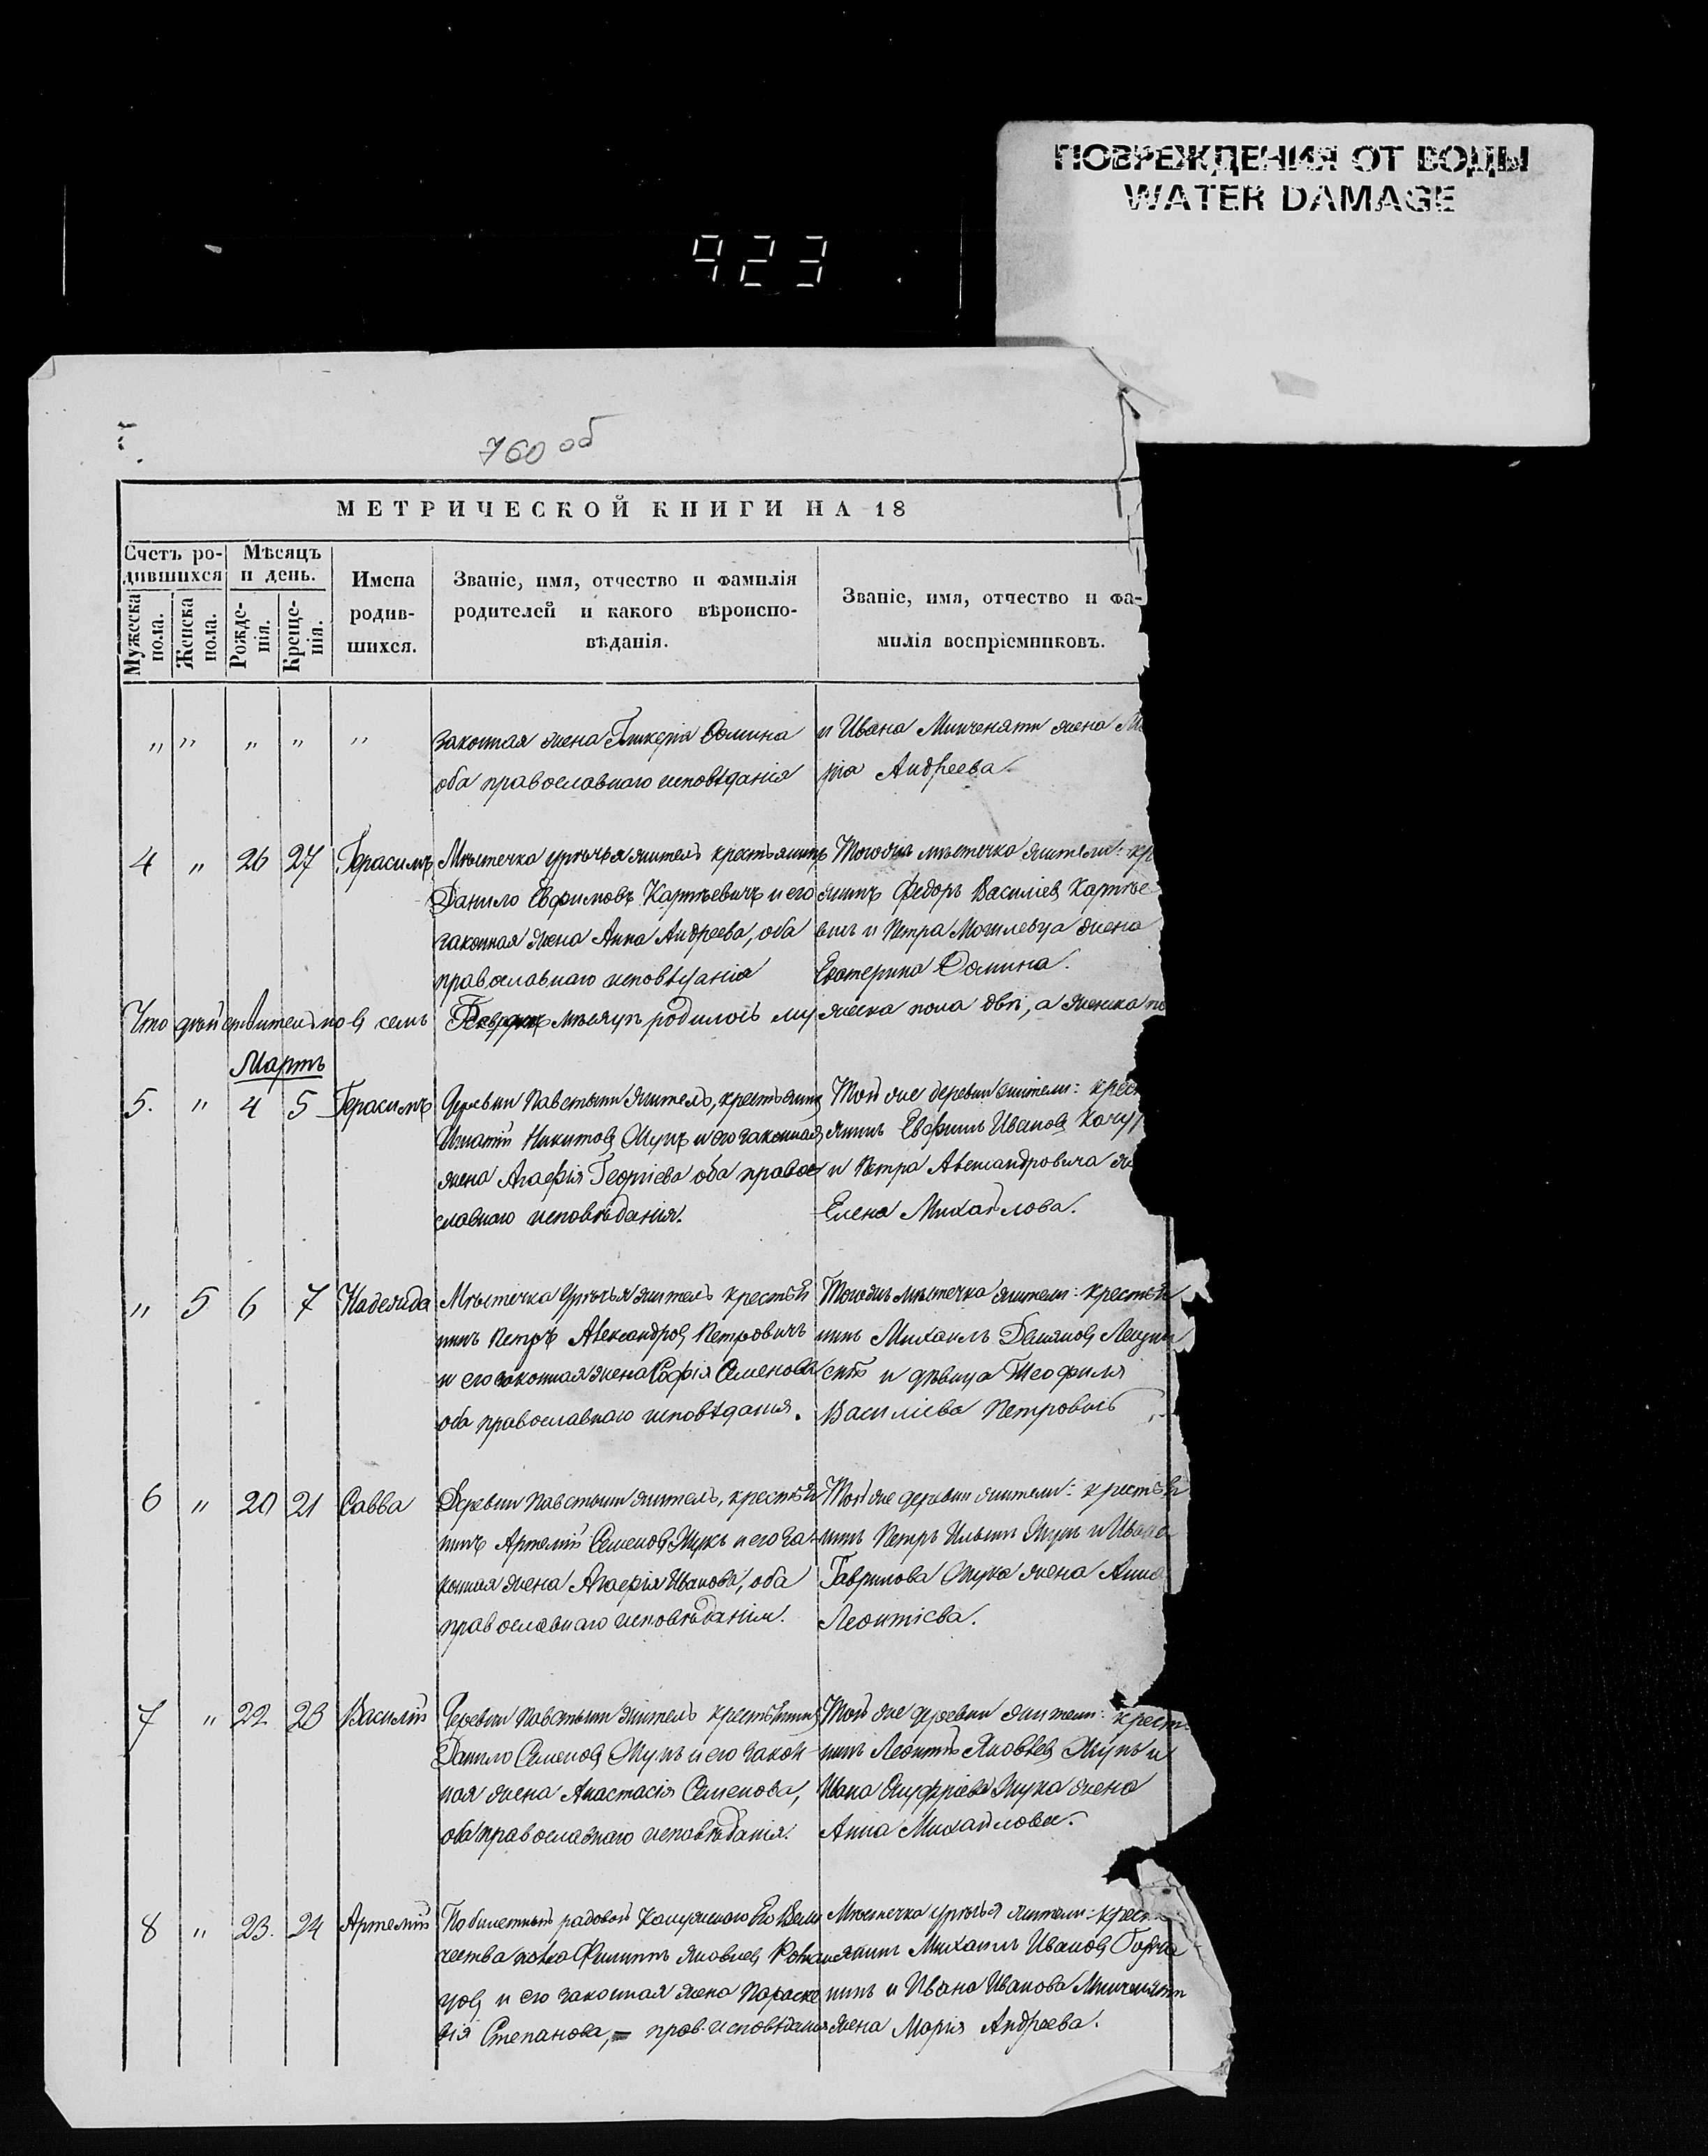 ПОВРЕЖДЕНИЯ ОТ ВОДЫ
WATER DAMAGE
923
760 об
МЕТРИЧЕСКОЙ КНИГИ НА 18
Счетъ родившихся
Мужеска пола.
Женска пола.
Мѣсяцъ и день.
Рожденія.
Крещенія.
Имена родившихся.
Званіе, имя, отчество и фамилія
родителей и какого вѣроиспо-
вѣданія.
Званіе, имя, отчество и фа-
милія воспріемниковъ.
" " " " "
законная жена Гликерія Фомина
оба православнаго исповѣданія
и Ивана Минченяти жена Ма
рія Андреева.
4 " 26 27 Герасимъ
Мѣстечка Урѣчья житель крестьянинъ
Данило Евфимовъ Картъевичъ и его
законная жена Анна Андреева, оба
православнаго исповѣданія
Тогожъ мѣстечка жители: кр
янинъ Федоръ Василіев Картъе
вичъ и Петра Могилевца жена
Екатерина Фомина.
Что дѣйствительно въ семъ мѣсяцѣ родилось мужеска пола двѣ, а женска по
Мартъ
5. " 4 5 Герасимъ
Деревни Павстыни житель, крестьянинъ
Игнатій Никитовъ Жукъ и его законная
жена Агафія Георгіева оба право
славнаго исповѣданія.
Той же деревни жители: крес
янинъ Евфимъ Иванов
и Петра Александровича же
Елена Михайлова.
" 5 6 7 Надежда
Мѣстечка Урѣчья житель крестья
нинъ Петръ Александров Петровичъ
и его законная жена Софія Семенова
оба православнаго исповѣданія.
Тогожъ мѣстечка жители: крестья
нинъ Михаилъ
и дѣвица Теофиля
Василіева Петровичъ
6 " 20 21 Савва
Деревни Павстыни житель, крестья
нинъ Артемій Семенов Жукъ и его за-
конная жена Агафія Иванова, оба
православнаго исповѣданія.
Той же деревни жители: крестья
нинъ Петръ Ильинъ Жукъ и Ивана
Гаврилова Жука жена Анна
Леонтіева.
7 " 22 23 Василій
Деревни Павстыни житель крестьянинъ
Данило Семенов Жукъ и его закон-
ная жена Анастасія Семенова,
оба православнаго исповѣданія.
Той же деревни жители: крест
нинъ Леонтій Яковлев Жукъ и
Ивана Онуфріева Жука жена
Анна Михайлова.
8 " 23. 24 Артемій
По билетный рядовой Калужскаго Его Вели
чества полка Филиппъ Яковлев
и его законная жена Параске
вія Степанова, прав. исповѣданія
Мѣстечка Урѣчья жители: крест
янинъ Михаилъ Иванов
нинъ и Ивана Иванова Минченяти
жена Марія Андреева.